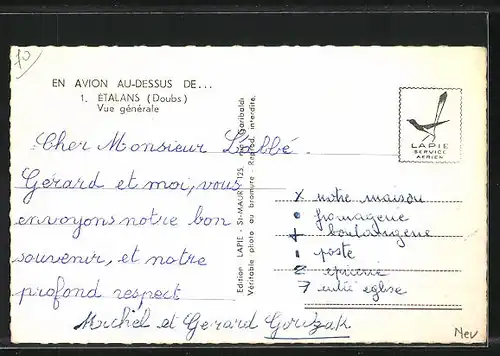 70
EN AVION AU-DESSUS DE...
1. ÉTALANS (Doubs)
Vue générale
Cher Monsieur L'abbé.
Gérard et moi, vous
envoyons notre bon
souvenir, et notre
profond respect
Michel et Gerard
Edition LAPIE - St-MAUR 125, Garibaldi
Véritable photo au bromure - Reprod. interdite.
LAPIE
SERVICE
AERIEN
x notre maison
• fromagerie
+ boulangerie
poste
2 epicerie
7 église
Nev